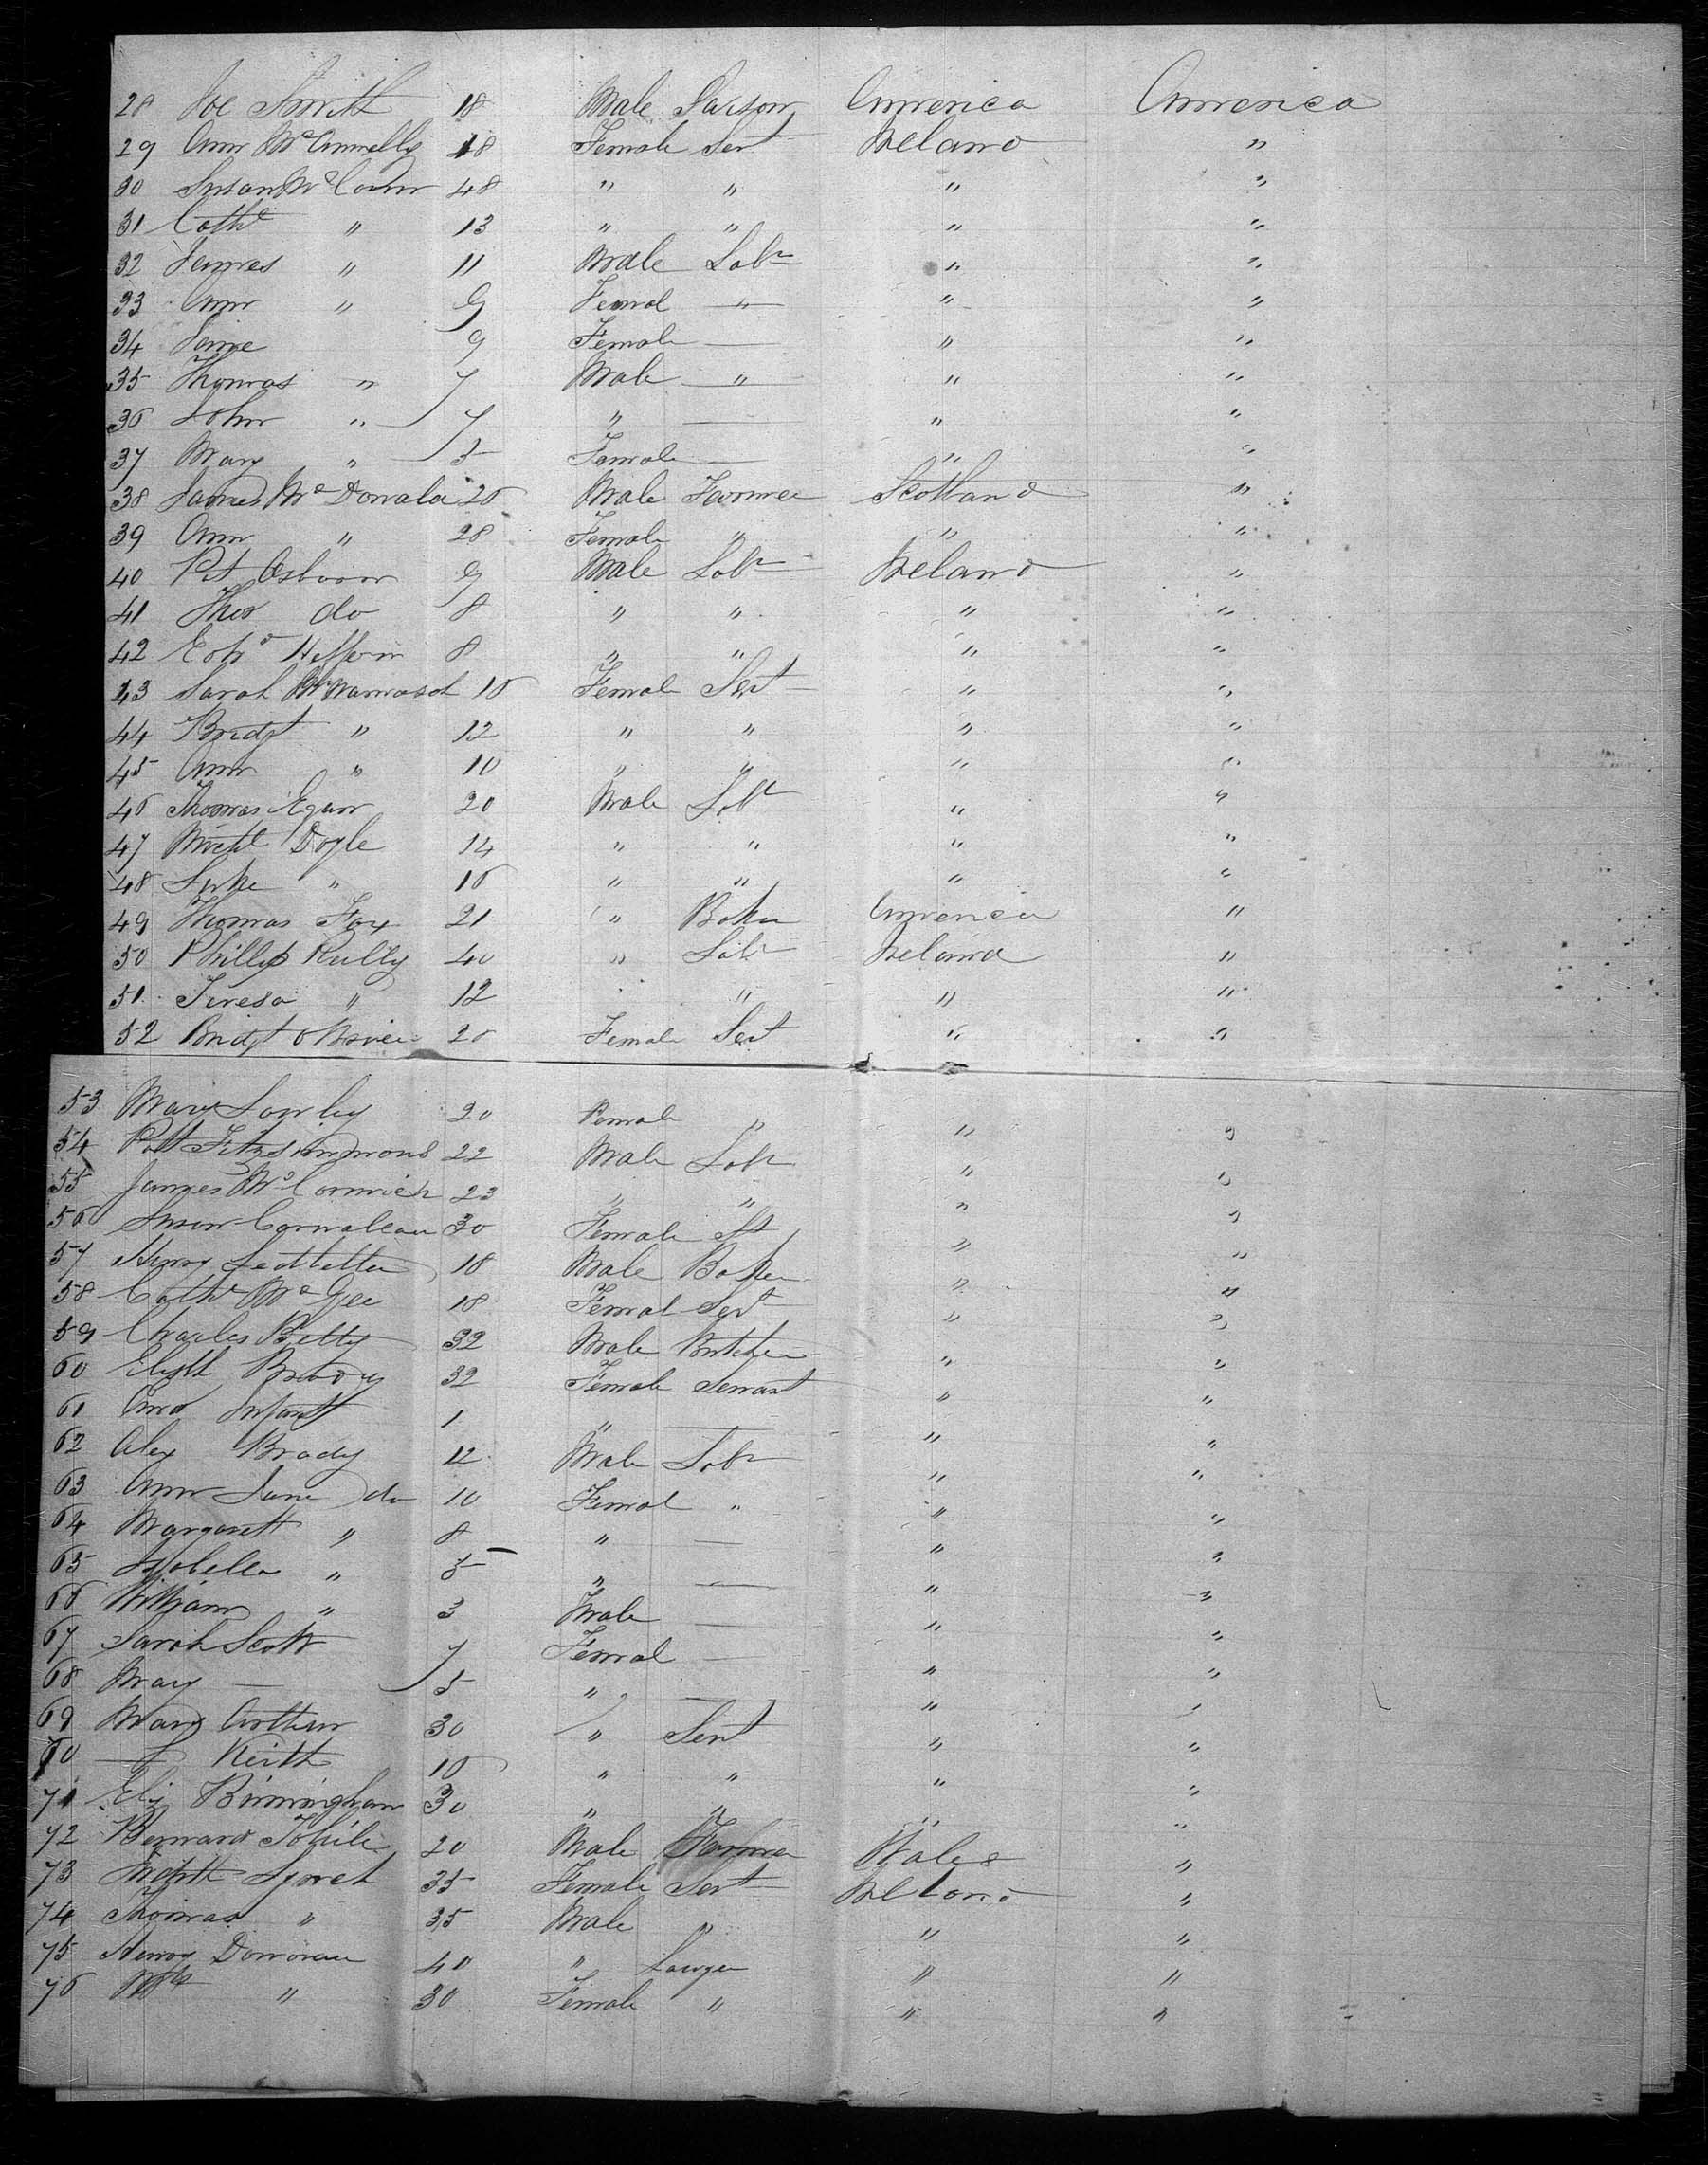 28 Joe Smith 18 Male America America
29 Ann McAnnelly 18 Female Sert Ireland "
30 Susan McCann 48 " " " "
31 Cathe " 13 " " " "
32 James " 11 Male Labr " "
33 Ann " 9 Femal " " "
34 Jane 9 Female — " "
35 Thomas " 7 Male " " "
36 John " 7 " — " "
37 Mary " 5 Female — " "
38 James McDonald 26 Male Farmer Scotland "
39 Ann " 28 Female " " "
40 Pat Osborn 9 Male Labr Ireland "
41 Thos do 8 " " " "
42 Edwd Heffern 8 " " " "
43 Sarah 16 Female Sert " "
44 Bridgt " 12 " " " "
45 Ann " 10 " " " "
46 Thomas Egan 20 Male Labr " "
47 Michl Doyle 14 " " " "
48 Luke " 16 " " " "
49 Thomas Fox 21 " Baker America "
50 Phillip Reilly 40 " Labr Ireland "
51 Teresa " 12 " " "
52 Bridgt O Brien 20 Female Sert " "
53 Mary 20 Female " " "
54 Patt Fitzsimmons 22 Male Labr " "
55 James McCormick 23 " " " "
56 Susan 30 Female St " "
57 Henry Ledbetter 18 Male Baker " "
58 Cathe McGee 18 Femal Sert " "
59 Charles Betty 32 Male Butcher " "
60 Elizth Brady 32 Female Servant " "
61 Infant 1 " — " "
62 Alex Brady 12 Male Labr " "
63 Ann Jane do 10 Femal " " "
64 Margarett " 8 " — " "
65 Isabella " 5 " — " "
66 William " 3 Male — " "
67 Sarah Scott 7 Femal — " "
68 Mary — 5 " — " "
69 Mary Arthur 30 " Sert " "
70 — Keith 10 " " " "
71 Eliz Birmingham 30 " " " "
72 Bernard 20 Male Farmer Wales "
73 35 Female Sert Ireland "
74 Thomas " 35 Male " " "
75 Henry Donovan 40 " Lawyer " "
76 Mrs " 30 Female " " "